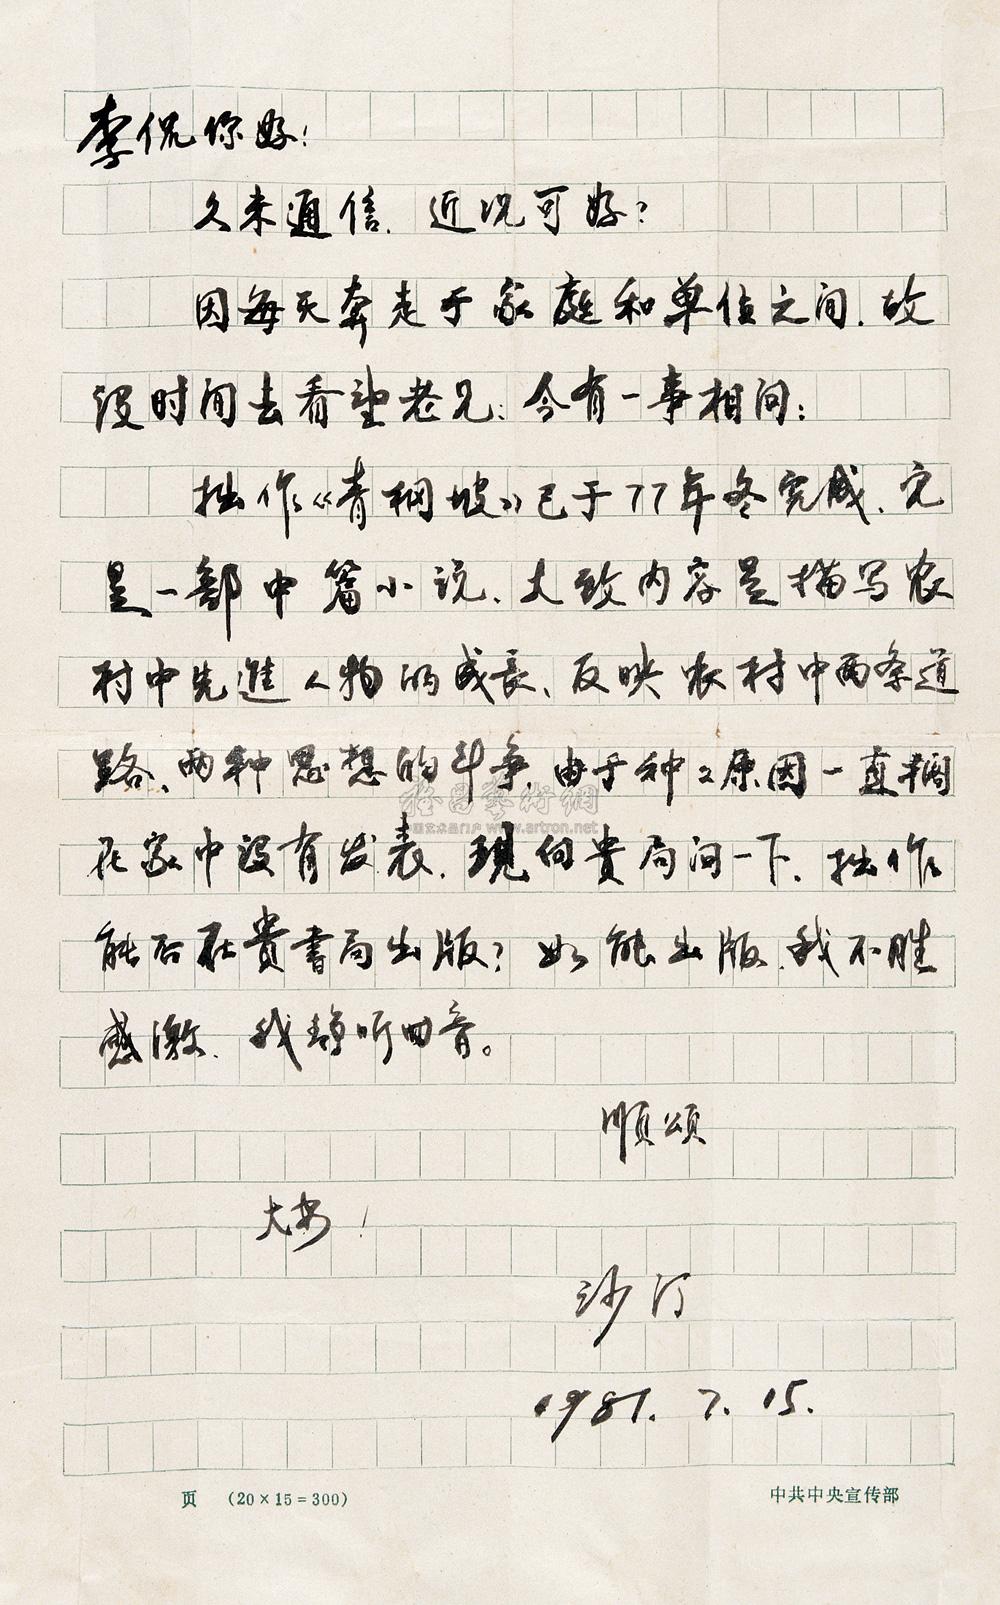 李侃你好！
久未通信，近况可好？
因每天奔走于家庭和单位之间，故
没时间去看望老兄，今有一事相问：
拙作《青㭎坡》已于77年冬完成，它
是一部中篇小说，大致内容是描写农
村中先進人物的成長，反映农村中两条道
路、两种思想的斗争，由于种々原因一直搁
在家中没有发表，現向貴局问一下，拙作
能否在貴書局出版？如能出版，我不胜
感激，我静听回音。
順頌
大安！
沙汀
1981.7.15.
雅昌藝術網
中国艺术品门户 www.artron.net
页 （20×15＝300） 中共中央宣传部